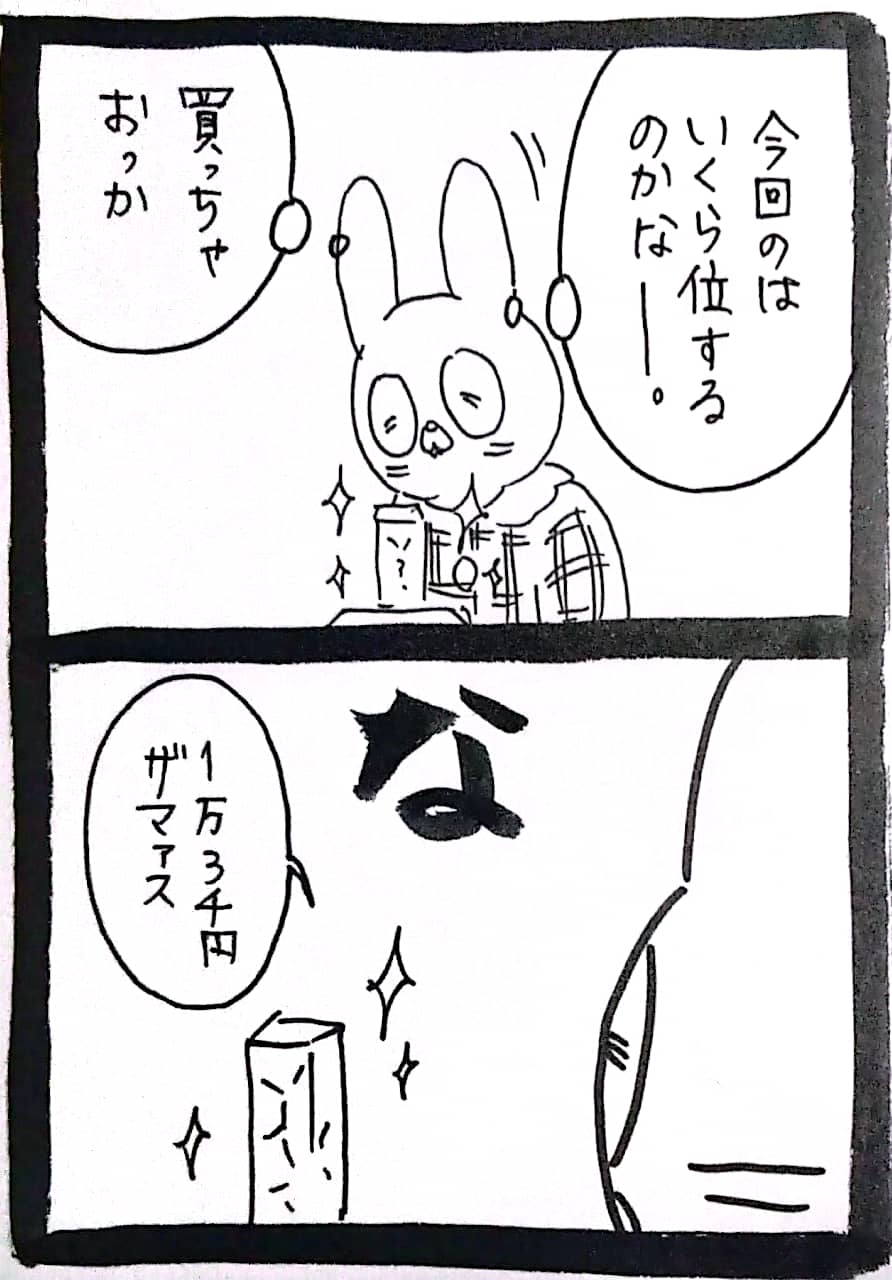 今回のは
いくら位する
のかなー。
買っちゃ
おっか
な
1万3千円
ザマァス